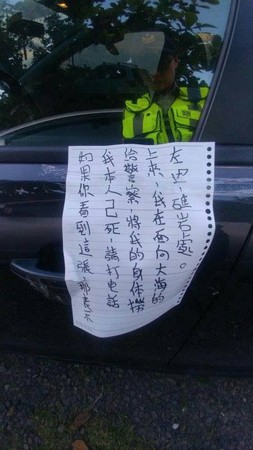 如果你看到這張,那表示
我本人已死,請打電話
給警察,將我的身体撈
上來,我在面向大海的
左边,礁岩石處。